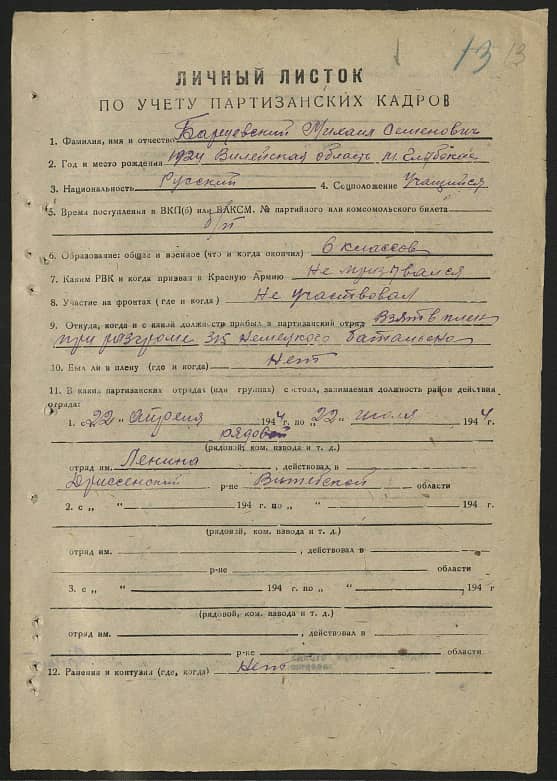 13 13
ЛИЧНЫЙ ЛИСТОК
ПО УЧЕТУ ПАРТИЗАНСКИХ КАДРОВ
1. Фамилия, имя и отчество Михаил Семенович
2. Год и место рождения 1924 Вилейская область м. Глубокие
3. Национальность Русский 4. Соцположение Учащийся
5. Время поступления в ВКП(б) или ВЛКСМ. № партийного или комсомольского билета
б/п
6. Образование: общее и военное (что и когда окончил) 6 классов
7. Каким РВК и когда призван в Красную Армию Не призывался
8. Участие на фронтах (где и когда) Не участвовал
9. Откуда, когда и с какой должности прибыл в партизанский отряд Взят в плен
при разгроме 315 Немецкого батальона
10. Был ли в плену (где и когда) Нет
11. В каких партизанских отрядах (или группах) состоял, занимаемая должность район действия
отряда:
1. с „22“ Апреля 1944 г. по „22“ июля 1944 г.
рядовой
(рядовой, ком. взвода и т. д.)
отряд им. Ленина, действовал в
Дриссенский р-не Витебской области
2. с „ “ 194 г. по „ “ 194 г.
(рядовой, ком. взвода и т. д.)
отряд им. , действовал в
р-не области
3. с „ “ 194 г. по „ “ 194 г
(рядовой, ком. взвода и т. д.)
отряд им. , действовал в
р-не области
12. Ранения и контузии (где, когда) Нет